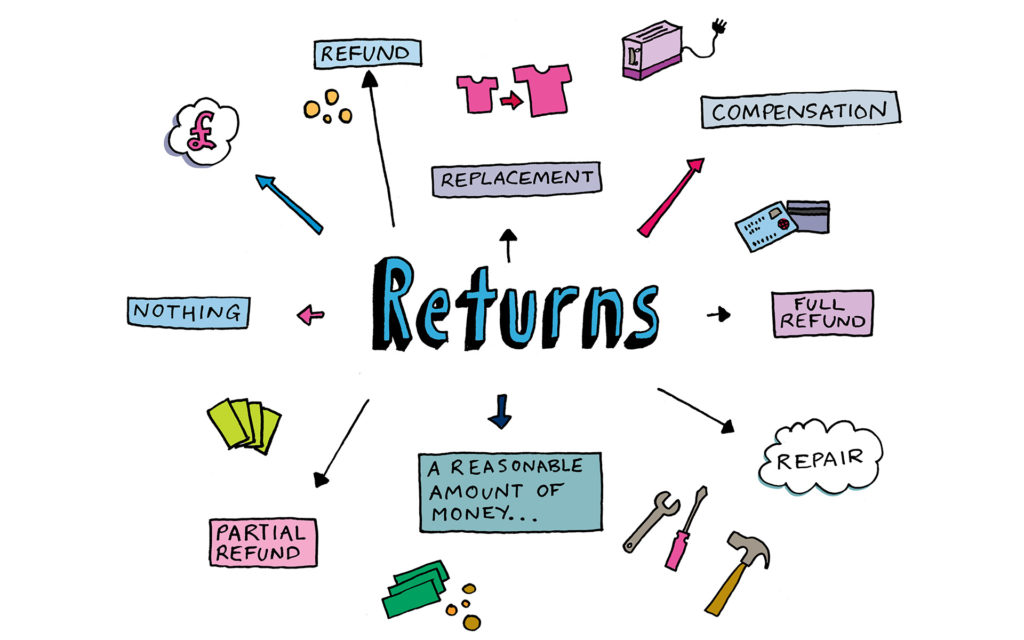 REFUND
£
COMPENSATION
REPLACEMENT
Returns
NOTHING
FULL
REFUND
REPAIR
A REASONABLE
AMOUNT OF
MONEY...
PARTIAL
REFUND